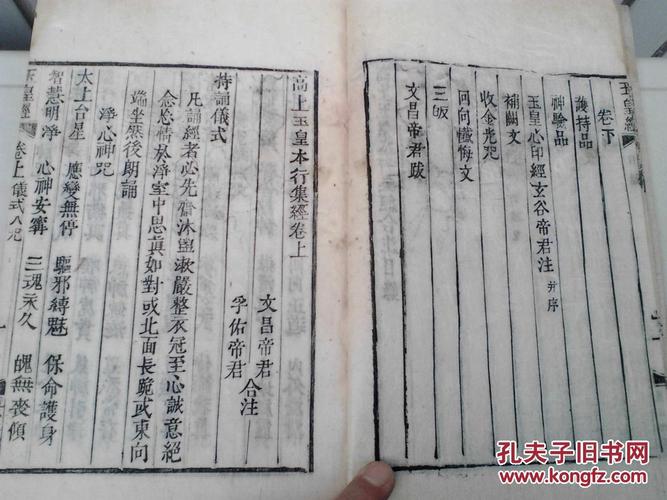 玉皇經
卷下
護持品
神驗品
玉皇心印經玄谷帝君注 并序
補闕文
收金光咒
回向懺悔文
三皈
文昌帝君跋
高上玉皇本行集經卷上
文昌帝君
孚佑帝君 合注
持誦儀式
凡誦經者必先齋沐盥漱嚴整衣冠至心誠意絕
念忘情於淨室中思真如對或北面長跪或東向
端坐然後朗誦
淨心神咒
太上台星 應變無停 驅邪縛魅 保命護身
智慧明淨 心神安寧 三魂永久 魄無喪傾
玉皇經 卷上 儀式 咒
一
孔夫子旧书网
www.kongfz.com